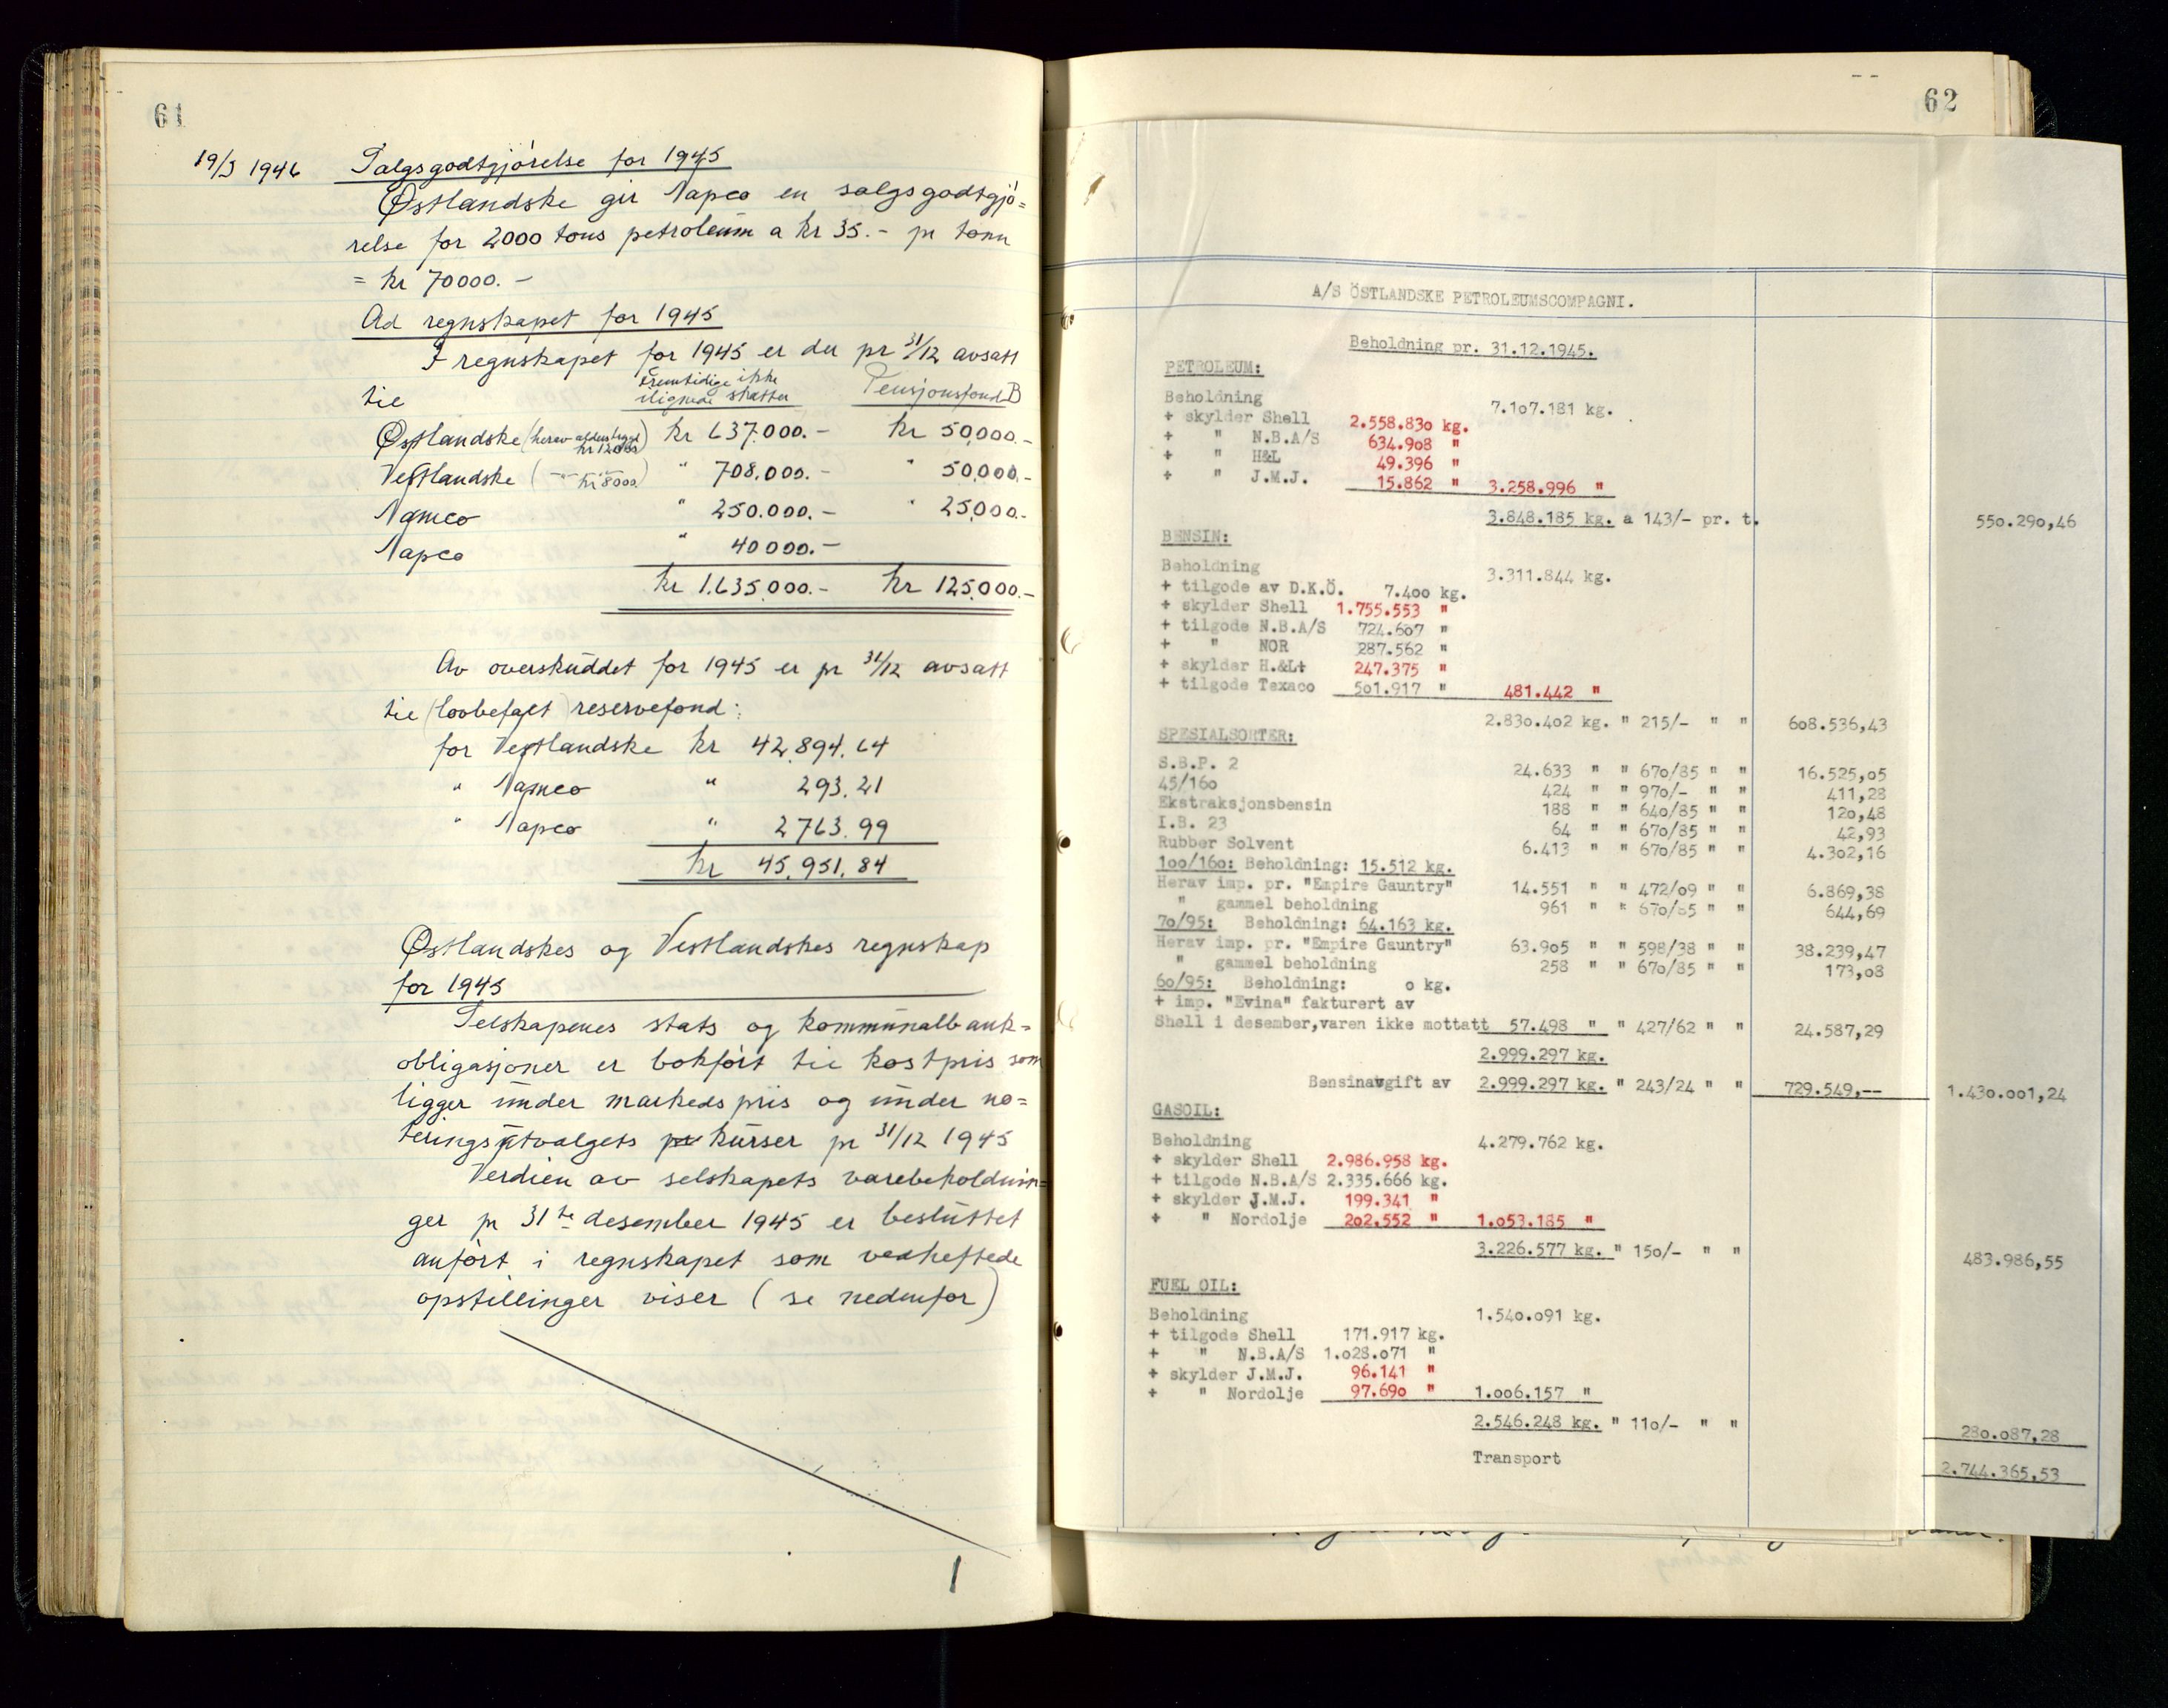 61
19/3 1946 Salgsgodtgjörelse for 1945
Østlandske gir Napco en salgsgodtgjö=
relse for 2000 tons petroleum a kr 35.- pr tonn
= kr 70000.-
Ad regnskapet for 1945
I regnskapet for 1945 er der pr 31/12 avsatt
til Fremtidige ikke ilignede skatter Pensjonsfond B
Østlandske (herav alderstrygd kr 12000) kr 637.000.- kr 50,000.-
Vestlandske ( -"- kr 8000.) " 708.000.- " 50,000.-
Namco " 250.000.- " 25,000.-
Napco " 40000.-
kr 1.635.000.- kr 125,000.-
Av overskuddet for 1945 er pr 31/12 avsatt
til (lovbefalt) reservefond:
for Vestlandske kr 42,894.64
" Namco " 293.21
" Napco " 2763.99
kr 45,951.84
Østlandskes og Vestlandskes regnskap
for 1945
Selskapenes stats og kommunalbank=
obligasjoner er bokfört til kostpris som
ligger under markedspris og under no=
teringsutvalgets kurser pr 31/12 1945
Verdien av selskapets varebeholdnin=
ger pr 31te desember 1945 er besluttet
anfört i regnskapet som vedheftede
opstillinger viser (se nedenfor)
1
62
A/S ÖSTLANDSKE PETROLEUMSCOMPAGNI.
Beholdning pr. 31.12.1945.
PETROLEUM:
Beholdning 7.107.181 kg.
+ skylder Shell 2.558.830 kg.
+ " N.B.A/S 634.908 "
+ " H&L 49.396 "
+ " J.M.J. 15.862 " 3.258.996 "
3.848.185 kg. a 143/- pr. t. 550.290,46
BENSIN:
Beholdning 3.311.844 kg.
+ tilgode av D.K.Ö. 7.400 kg.
+ skylder Shell 1.755.553 "
+ tilgode N.B.A/S 724.607 "
+ " NOR 287.562 "
+ skylder H.&L+ 247.375 "
+ tilgode Texaco 501.917 " 481.442 "
2.830.402 kg. " 215/- " " 608.536,43
SPESIALSORTER:
S.B.P. 2 24.633 " " 670/85 " " 16.525,05
45/160 424 " " 970/- " " 411,28
Ekstraksjonsbensin 188 " " 640/85 " " 120,48
I.B. 23 64 " " 670/85 " " 42,93
Rubber Solvent 6.413 " " 670/85 " " 4.302,16
100/160: Beholdning: 15.512 kg.
Herav imp. pr. "Empire Gauntry" 14.551 " " 472/09 " " 6.869,38
" gammel beholdning 961 " " 670/85 " " 644,69
70/95: Beholdning: 64.163 kg.
Herav imp. pr. "Empire Gauntry" 63.905 " " 598/38 " " 38.239,47
" gammel beholdning 258 " " 670/85 " " 173,08
60/95: Beholdning: 0 kg.
+ imp. "Evina" fakturert av
Shell i desember,varen ikke mottatt 57.498 " " 427/62 " " 24.587,29
2.999.297 kg.
Bensinavgift av 2.999.297 kg. " 243/24 " " 729.549,-- 1.430.001,24
GASOIL:
Beholdning 4.279.762 kg.
+ skylder Shell 2.986.958 kg.
+ tilgode N.B.A/S 2.335.666 kg.
+ skylder J.M.J. 199.341 "
+ " Nordolje 202.552 " 1.053.185 "
3.226.577 kg. " 150/- " " 483.986,55
FUEL OIL:
Beholdning 1.540.091 kg.
+ tilgode Shell 171.917 kg.
+ " N.B.A/S 1.028.071 "
+ skylder J.M.J. 96.141 "
+ " Nordolje 97.690 " 1.006.157 "
2.546.248 kg. " 110/- " " 280.087,28
Transport 2.744.365,53